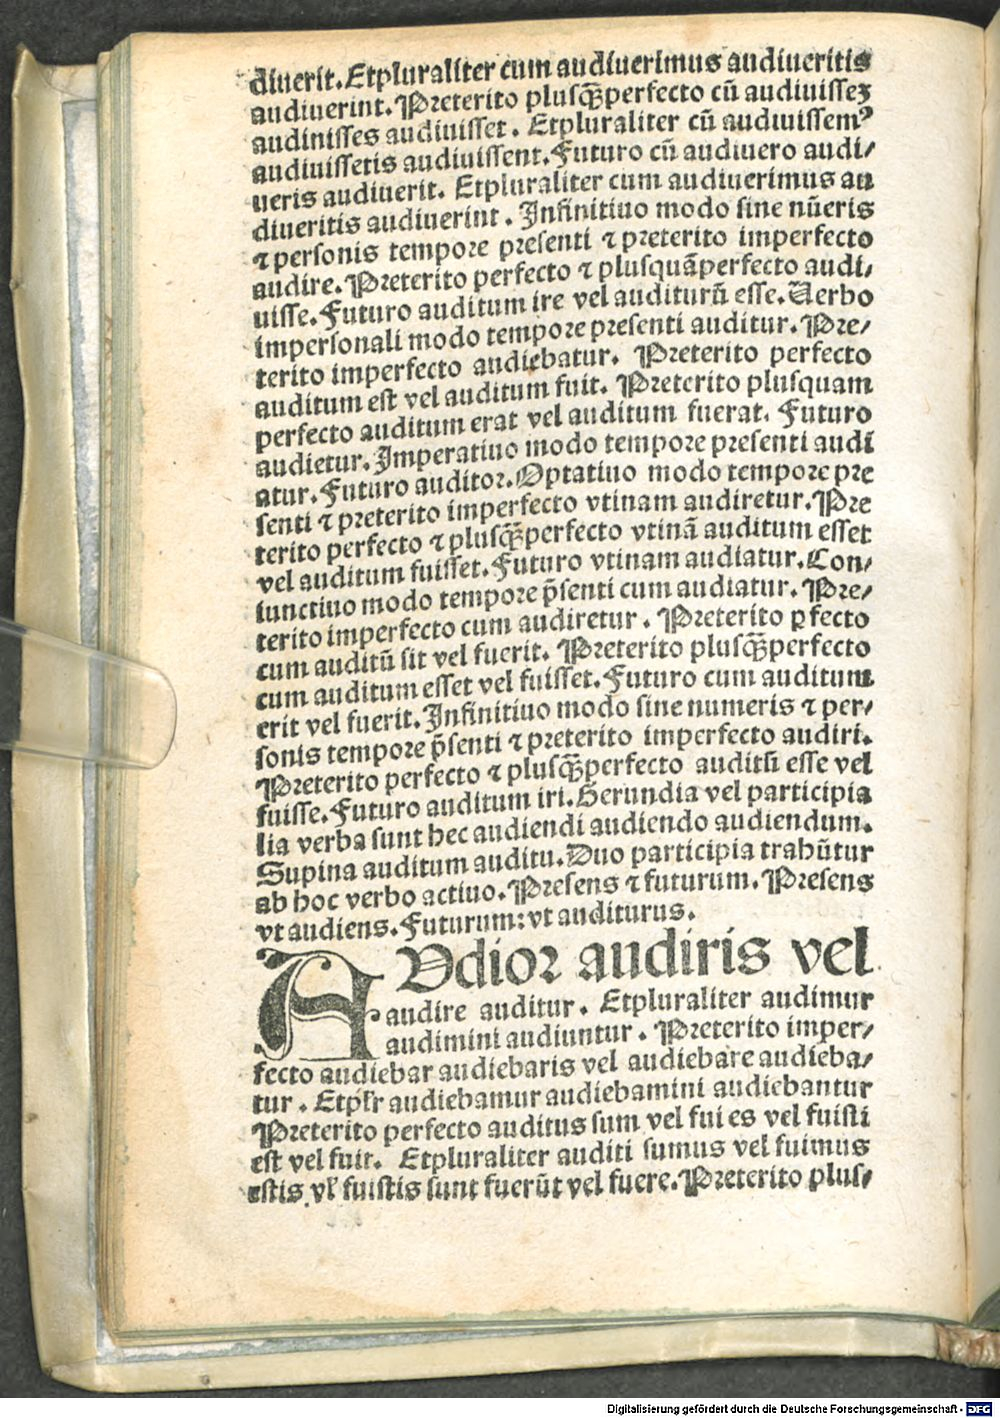 diuerit. Etpluraliter cum audiuerimus audiueritis
audiuerint. Preterito plusqꝫperfecto cū audiuisseꝫ
audinisses audiuisset. Etpluraliter cū audiuissemꝰ
audiuissetis audiuissent. Futuro cū audiuero audi/
ueris audiuerit. Etpluraliter cum audiuerimus au
diueritis audiuerint. Infinitiuo modo sine nūeris
⁊ personis tempore presenti ⁊ preterito imperfecto
audire. Preterito perfecto ⁊ plusquāperfecto audi/
uisse. Futuro auditum ire vel auditurū esse. Uerbo
impersonali modo tempore presenti auditur. Pre/
terito imperfecto audiebatur. Preterito perfecto
auditum est vel auditum fuit. Preterito plusquam
perfecto auditum erat vel auditum fuerat. Futuro
audietur. Imperatiuo modo tempore presenti audi
atur. Futuro auditor. Optatiuo modo tempore pre
senti ⁊ preterito imperfecto vtinam audiretur. Pre
terito perfecto ⁊ plusqꝫperfecto vtinā auditum esset
vel auditum fuisset. Futuro vtinam audiatur. Con/
iunctiuo modo tempore p̄senti cum audiatur. Pre/
terito imperfecto cum audiretur. Preterito ꝑfecto
cum auditū sit vel fuerit. Preterito plusqꝫperfecto
cum auditum esset vel fuisset. Futuro cum auditum
erit vel fuerit. Infinitiuo modo sine numeris ⁊ per/
sonis tempore p̄senti ⁊ preterito imperfecto audiri.
Preterito perfecto ⁊ plusqꝫperfecto auditū esse vel
fuisse. Futuro auditum iri. Gerundia vel participia
lia verba sunt hec audiendi audiendo audiendum.
Supina auditum auditu. Duo participia trahūtur
ab hoc verbo actiuo. Presens ⁊ futurum. Presens
vt audiens. Futurum: vt auditurus.
AUdior audiris vel
audire auditur. Etpluraliter audimur
audimini audiuntur. Preterito imper/
fecto audiebar audiebaris vel audiebare audieba/
tur. Etpl̄r audiebamur audiebamini audiebantur
Preterito perfecto auditus sum vel fui es vel fuisti
est vel fuit. Etpluraliter auditi sumus vel fuimus
estis vl̄ fuistis sunt fuerūt vel fuere. Preterito plus/
Digitalisierung gefördert durch die Deutsche Forschungsgemeinschaft - DFG